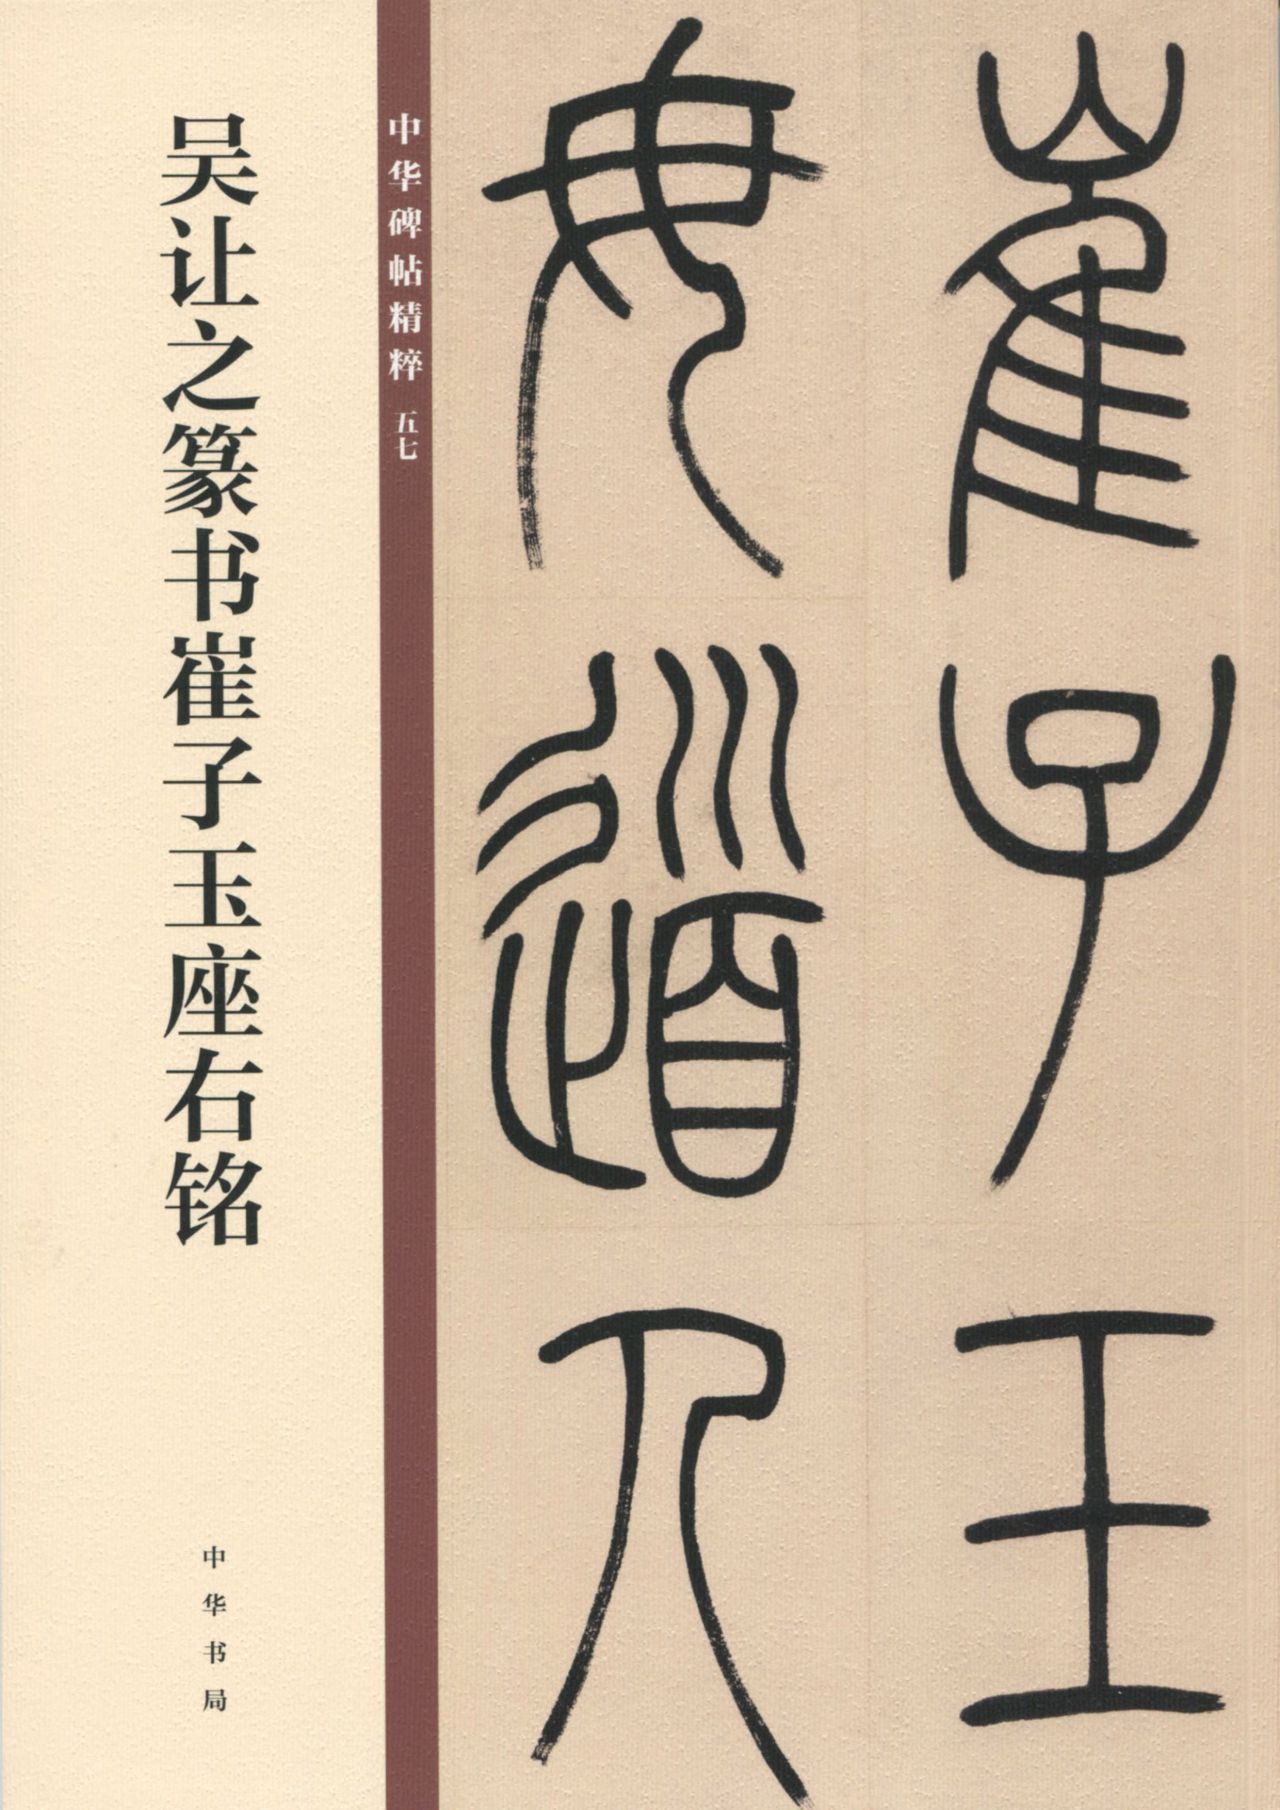 崔子玉
毋道人
中华碑帖精粹 五七
吴让之篆书崔子玉座右铭
中华书局